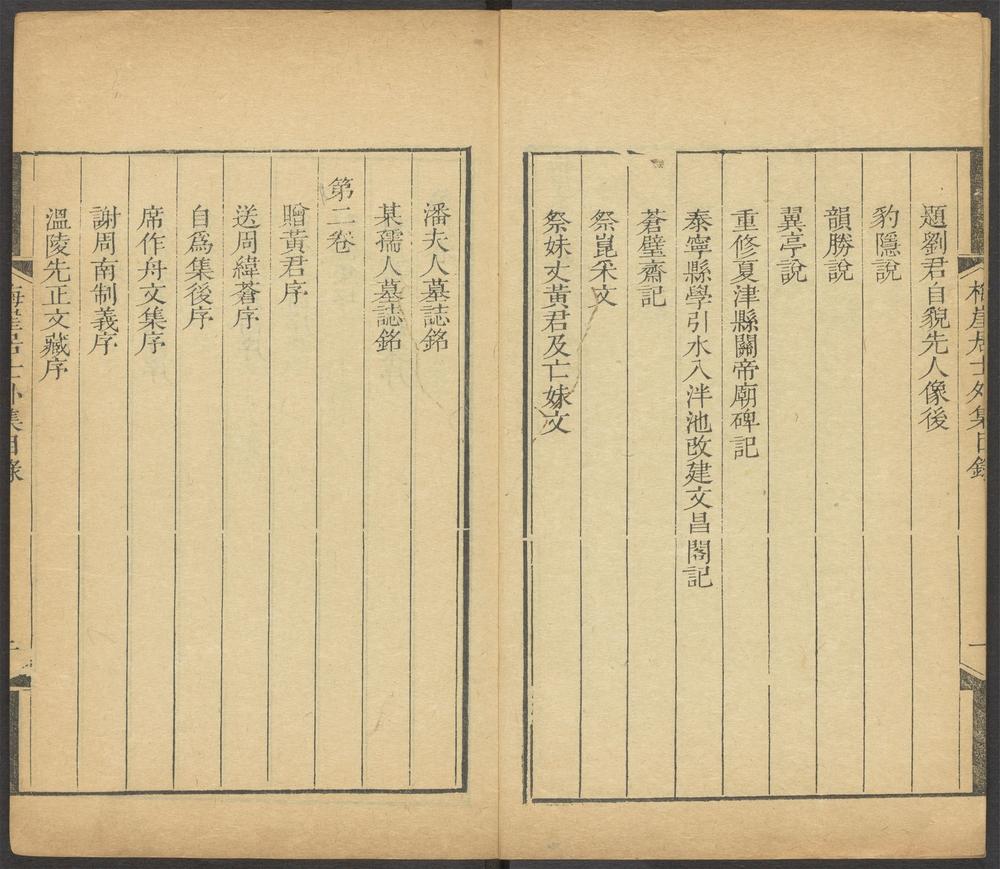 梅崖居士外集目錄
一
題劉君自貌先人像後
豹隱說
韻勝說
翼亭說
重修夏津縣關帝廟碑記
泰寧縣學引水入泮池改建文昌閣記
蒼璧齋記
祭崑采文
祭妹丈黃君及亡妹文
潘夫人墓誌銘
某孺人墓誌銘
第二卷
贈黃君序
送周緯蒼序
自爲集後序
席作舟文集序
謝周南制義序
溫陵先正文藏序
梅崖居士外集目錄